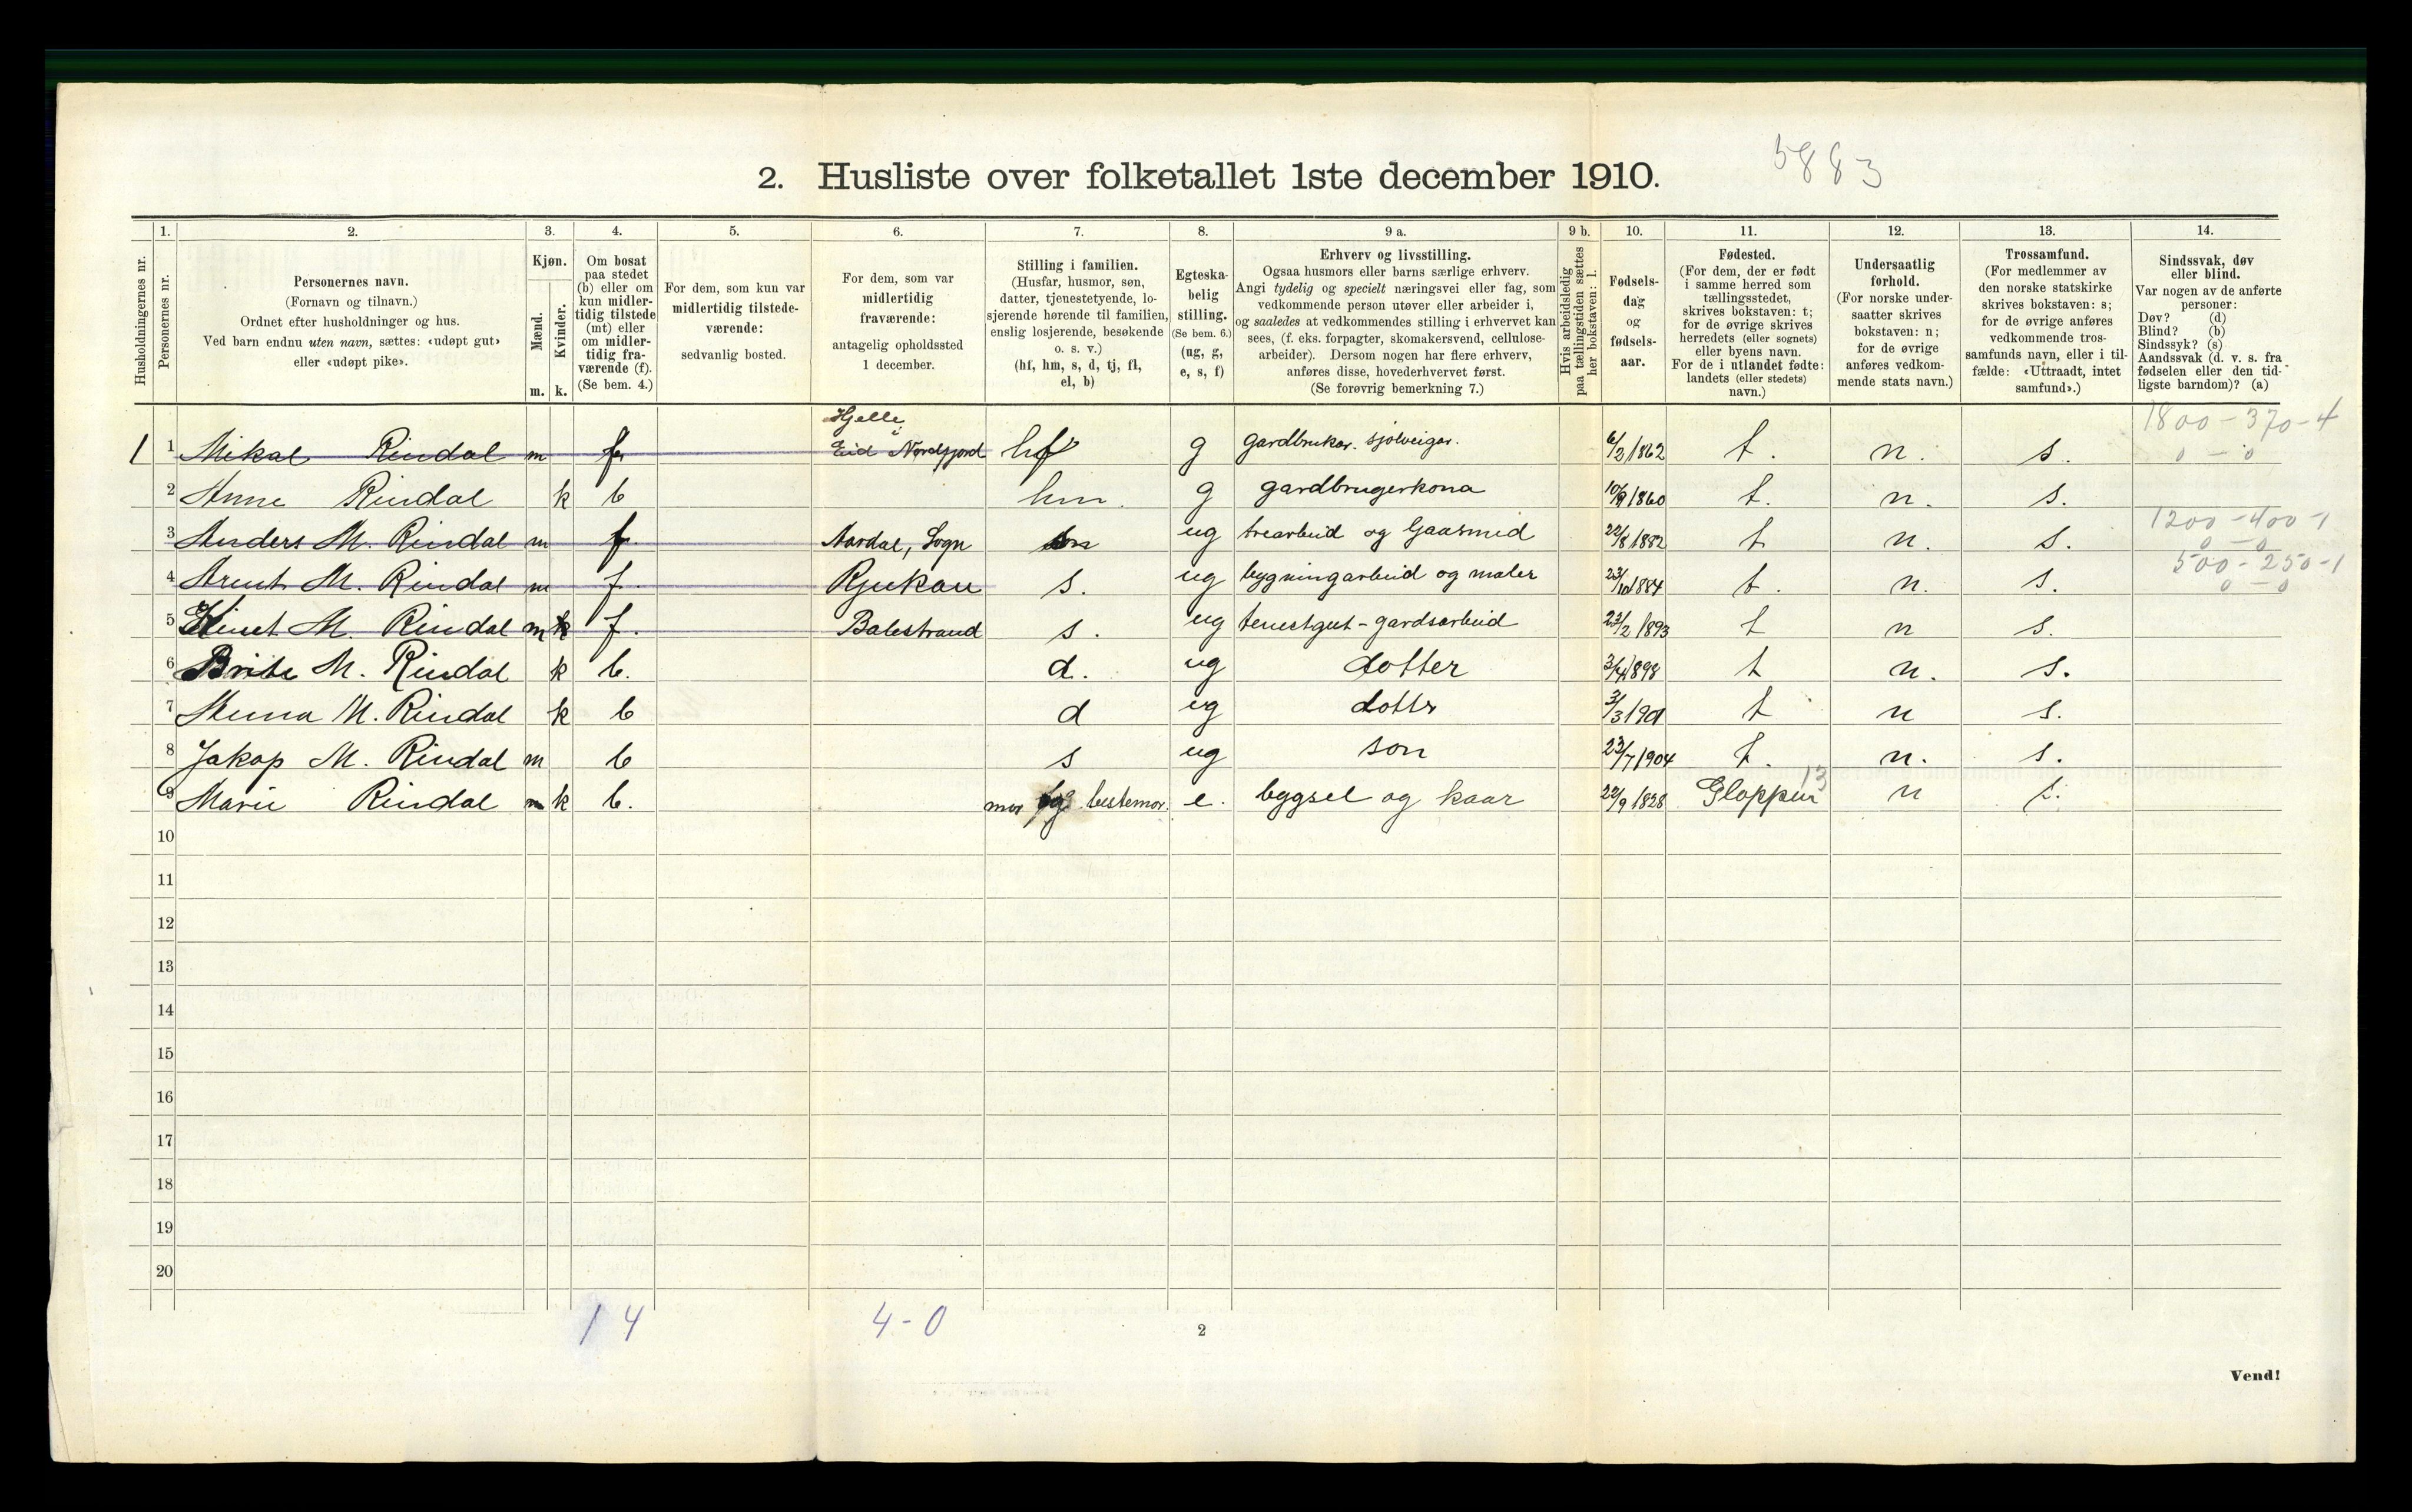 5883
2. Husliste over folketallet 1ste december 1910.
Husholdningernes nr.
1. 2. 3. 4. 5. 6. 7. 8. 9 a. 9 b. 10. 11. 12. 13. 14.
Personernes nr.
Personernes navn.
(Fornavn og tilnavn.)
Ordnet efter husholdninger og hus.
Ved barn endnu uten navn, sættes: «udøpt gut»
eller «udøpt pike».
Kjøn.
Mænd.
Kvinder.
m. k.
Om bosat
paa stedet
(b) eller om
kun midler-
tidig tilstede
(mt) eller
om midler-
tidig fra-
værende (f).
(Se bem. 4.)
For dem, som kun var
midlertidig tilstede-
værende:
sedvanlig bosted.
For dem, som var
midlertidig
fraværende:
antagelig opholdssted
1 december.
Stilling i familien.
(Husfar, husmor, søn,
datter, tjenestetyende, lo-
sjerende hørende til familien,
enslig losjerende, besøkende
o. s. v.)
(hf, hm, s, d, tj, fl,
el, b)
Egteska-
belig
stilling.
(Se bem. 6.)
(ug, g,
e, s, f)
Erhverv og livsstilling.
Ogsaa husmors eller barns særlige erhverv.
Angi tydelig og specielt næringsvei eller fag, som
vedkommende person utøver eller arbeider i,
og saaledes at vedkommendes stilling i erhvervet kan
sees, (f. eks. forpagter, skomakersvend, cellulose-
arbeider). Dersom nogen har flere erhverv,
anføres disse, hovederhvervet først.
(Se forøvrig bemerkning 7.)
Hvis arbeidsledig
paa tællingstiden sættes
her bokstaven: l.
Fødsels-
dag
og
fødsels-
aar.
Fødested.
(For dem, der er født
i samme herred som
tællingsstedet,
skrives bokstaven: t;
for de øvrige skrives
herredets (eller sognets)
eller byens navn.
For de i utlandet fødte:
landets (eller stedets)
navn.)
Undersaatlig
forhold.
(For norske under-
saatter skrives
bokstaven: n;
for de øvrige
anføres vedkom-
mende stats navn.)
Trossamfund.
(For medlemmer av
den norske statskirke
skrives bokstaven: s;
for de øvrige anføres
vedkommende tros-
samfunds navn, eller i til-
fælde: «Uttraadt, intet
samfund».)
Sindssvak, døv
eller blind.
Var nogen av de anførte
personer:
Døv? (d)
Blind? (b)
Sindssyk? (s)
Aandssvak (d. v. s. fra
fødselen eller den tid-
ligste barndom)? (a)
Hjelle i 1800-370-4
1 1 Mikal Rindal m f. Eid Nordfjord hf g gardbrukar. sjølveigar. 6/2 1862 t. n. s. 0 - 0
2 Anne Rindal k b hm. g gardbrugerkona 10/9 1860 t. n. s.
1200-400-1
3 Anders M. Rindal m f Aardal, Sogn ug trearbeid og 22/8 1882 t n. s. 0 - 0
500-250-1
4 Arnt M. Rindal m f. Rjukan s. ug bygningarbeid og maler 1884 t. n. s. 0 - 0
5 Knut M. Rindal m k f. Balestrand s. ug tenestgut - gardsarbeid 23/2 1893 t n s.
6 Brite M. Rindal k b. d. ug dotter 1898 t n. s.
7 M. Rindal k b d ug dotter 3/3 190 t n s.
8 Jakop M. Rindal m b s ug son 23/7 1904 t. n. s.
9 Marie Rindal m k b. mor og bestemor. e. bygsel og kaar 22/9 1828 Gloppen 13 n s.
10
11
12
13
14
15
16
17
18
19
20
14 4-0
2
Vend!